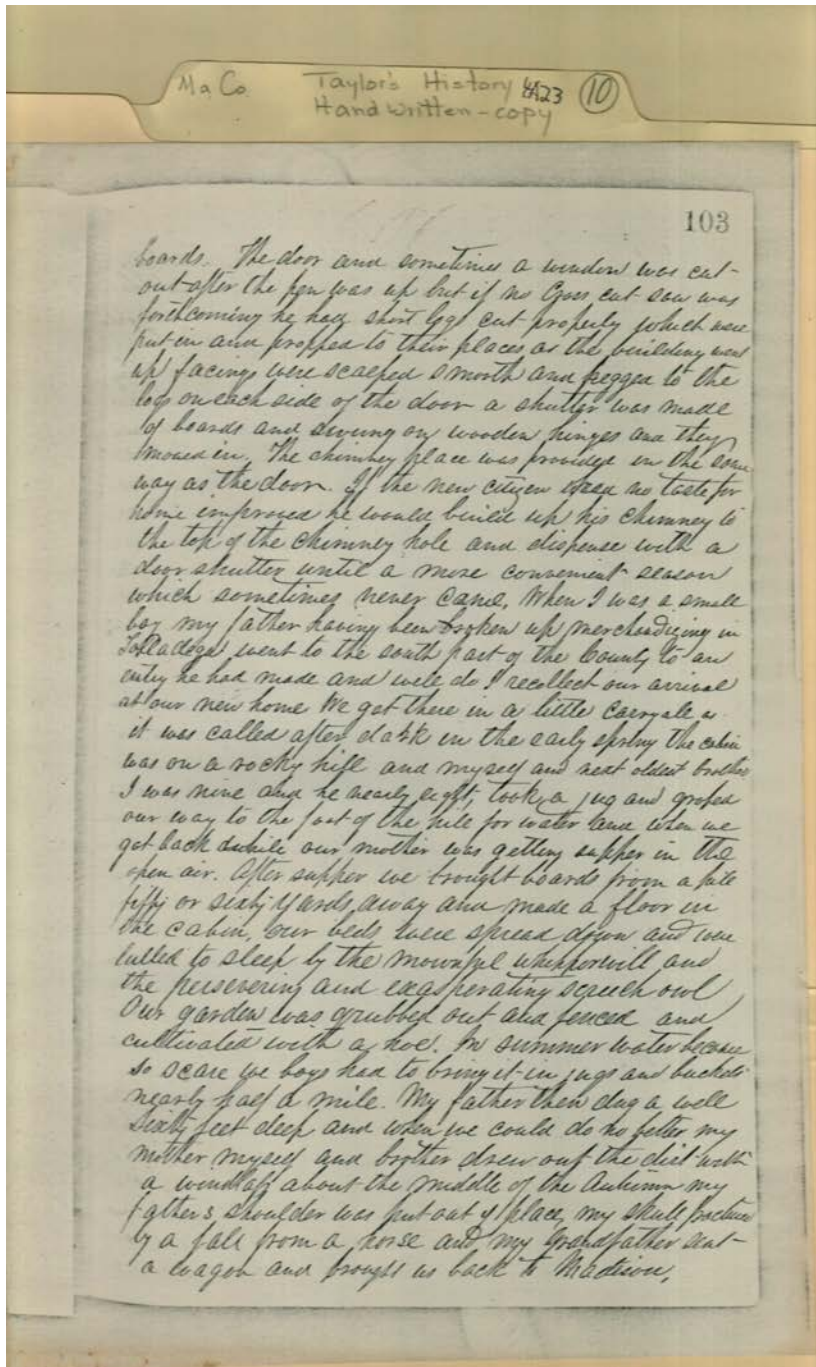 Ma. Co. Taylor's History 4A23 10
Handwritten - copy
103
boards. The door and sometimes a window was cut
out after the pen was up but if no Cross cut saw was
forthcoming he had short logs cut properly which were
put in and propped to their places as the building went
up facings were scalped smooth and pegged to the
logs on each side of the door a shutter was made
of boards and swung on wooden hinges and they
moved in. The chimney place was provided in the same
way as the door. If the new citizen had no taste for
home improved he would build up his chimney to
the top of the chimney hole and dispense with a
door shutter until a more convenient season
which sometimes never came. When I was a small
boy my father having been broken up merchandizing in
Talladega went to the south part of the County to an
entry he had made and well do I recollect our arrival
at our new home We got there in a little carryall as
it was called after dark in the early spring the cabin
was on a rocky hill and myself and next oldest brother
I was nine and he nearly eight, took a jug and groped
our way to the foot of the hill for water and when we
got back while our mother was getting supper in the
open air. After supper we brought boards from a pile
fifty or sixty yards away and made a floor in
the cabin, our beds were spread down and were
lulled to sleep by the mournful whipporwill and
the persevering and exasperating screech owl
Our garden was grubbed out and fenced and
cultivated with a hoe. In summer water became
so scarce we boys had to bring it in jugs and buckets
nearly half a mile. My father then dug a well
sixty feet deep and when we could do no better my
mother myself and brother drew out the dirt with
a windlass about the middle of the Autumn my
fathers shoulder was put out of place, my skull fractured
by a fall from a horse and my Grandfather sent
a wagon and brought us back to Madison.